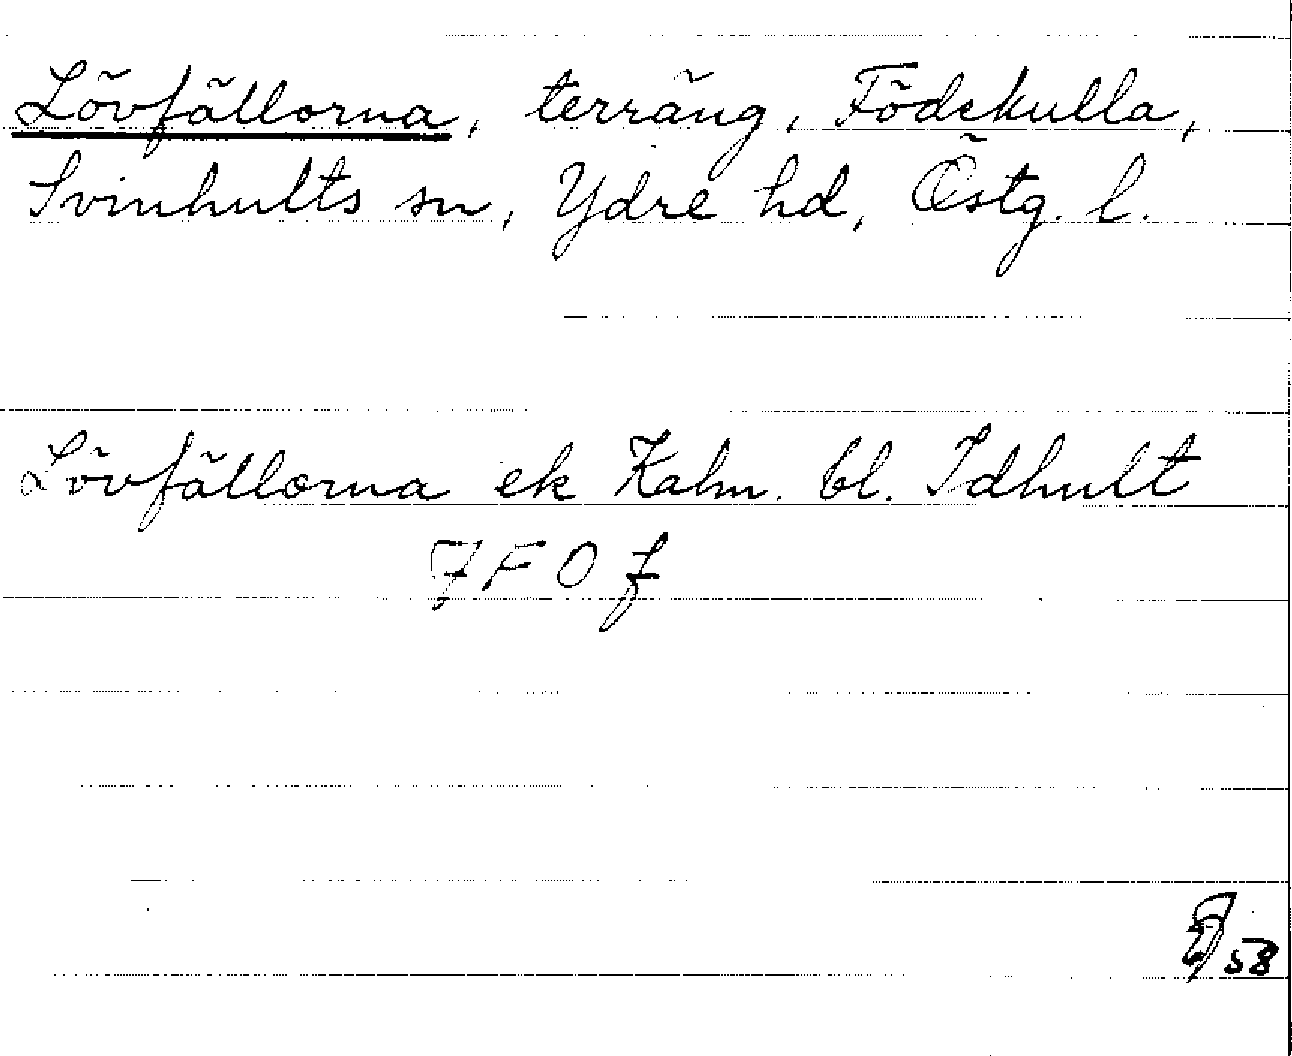 Lövfällorna, terräng, Födekulla,
Svinhults sn, Ydre hd, Östg. l.
Lövfällorna ek Kalm. bl. Idhult
7 F O f
58